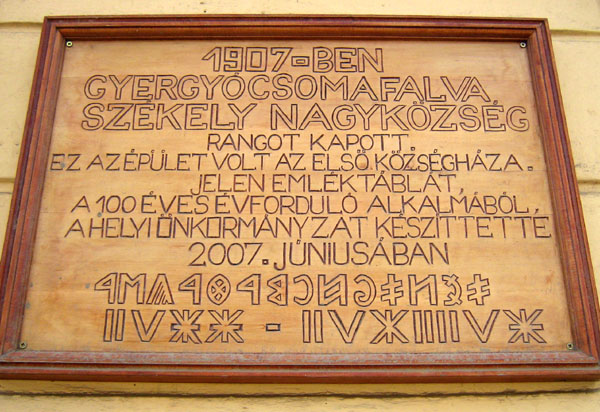 1907-BEN
GYERGYÓCSOMAFALVA
SZÉKELY NAGYKÖZSÉG
RANGOT KAPOTT.
EZ AZ ÉPÜLET VOLT AZ ELSŐ KÖZSÉGHÁZA.
JELEN EMLÉKTÁBLÁT,
A 100 ÉVES ÉVFORDULÓ ALKALMÁBÓL,
A HELYI ÖNKORMÁNYZAT KÉSZÍTTETTE
2007. JÚNIUSÁBAN